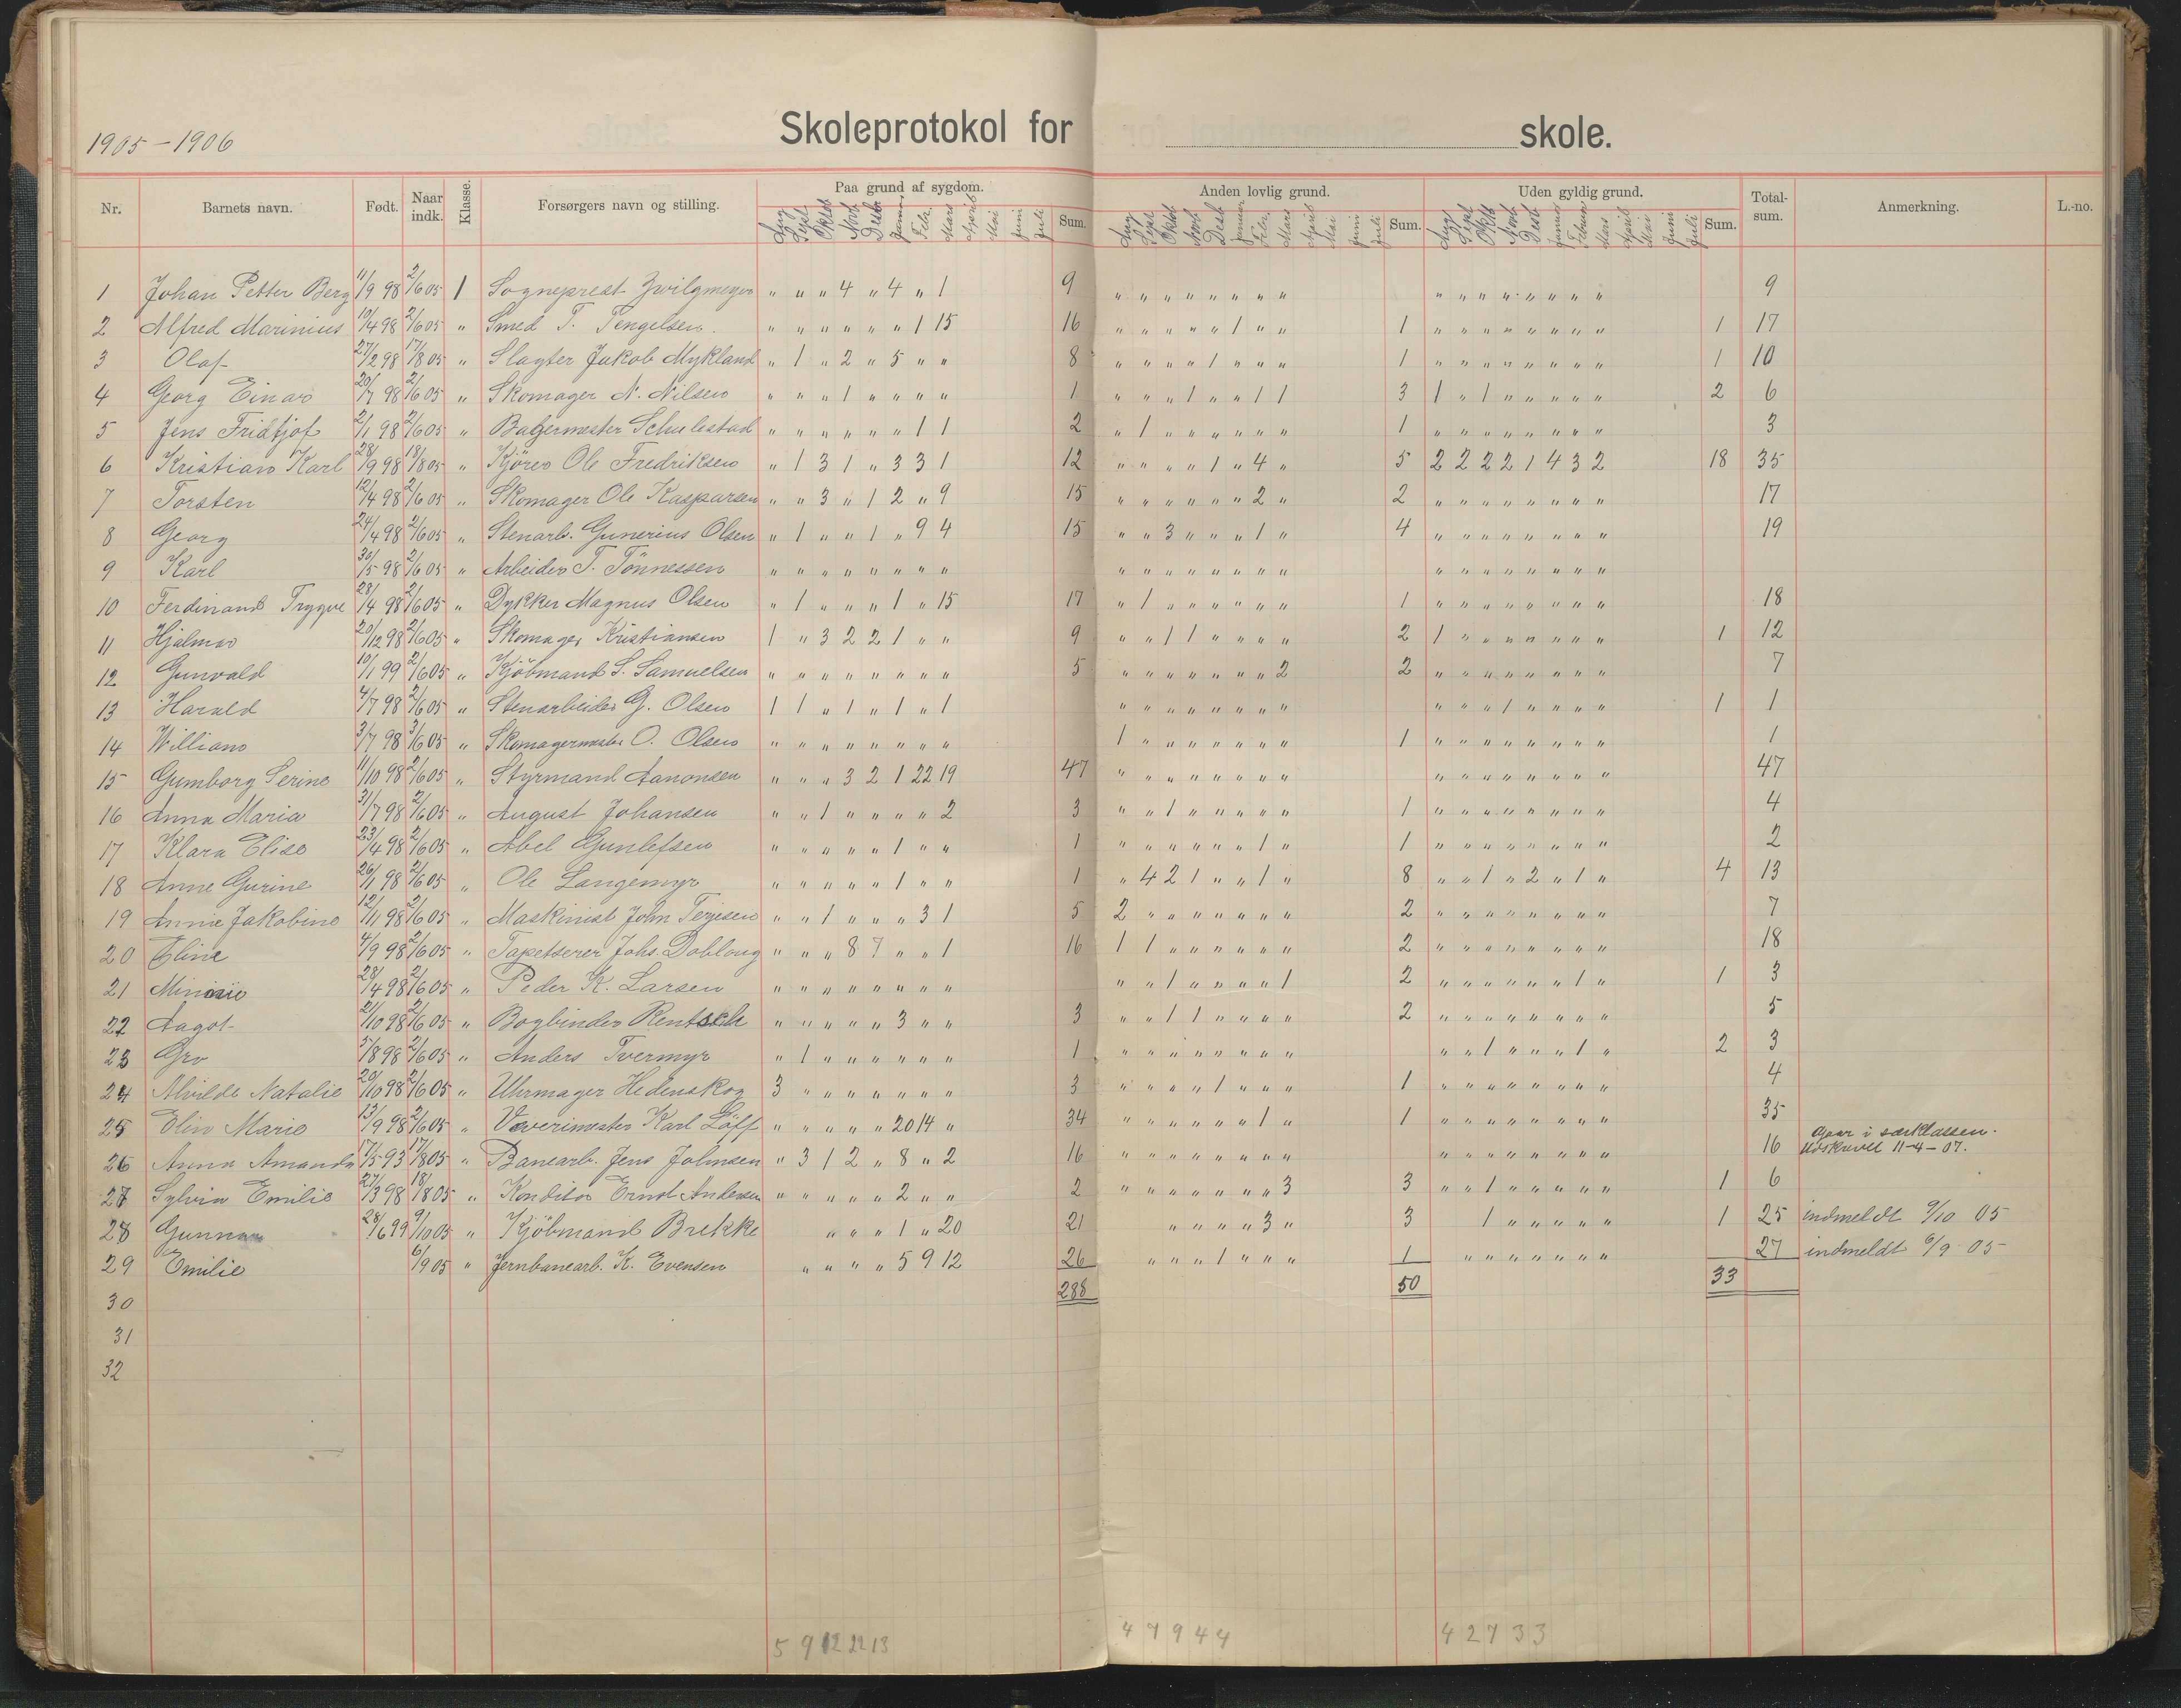 1905-1906
Skoleprotokol for skole.
Nr. Barnets navn. Født. Naar indk. Klasse. Forsørgers navn og stilling. Paa grund af sygdom. Sum. Anden lovlig grund. Sum. Uden gyldig grund. Sum. Total-sum. Anmerkning. L.-no.
Aug Sept Oktob Novb Desb Januar Febr. Mars April Mai Juni Juli Aug Sept Oktob Novb Desb Januar Febr. Mars April Mai Juni Juli Aug Sept Oktb Novb Desb Januar Februar Mars April Mai Juni Juli
1 Johan Petter Berg 11/9 98 2/6 05 1 Sogneprest Zwilgmeyer " " " 4 " 4 " 1 9 " " " " " " " " " " " " " " " " 9
2 Alfred Marinius 10/4 98 2/6 05 " Smed T. Tengelsen. " " " " " " 1 15 16 " " " " " 1 " " 1 " " " " " " " " 1 17
3 Olaf 27/2 98 17/8 05 " Slagter Jakob Mykland " 1 " 2 " 5 " " 8 " " " " 1 " " " 1 " " " " " " " " 1 10
4 Georg Einar 20/7 98 2/6 05 " Skomager N. Nilsen " " " 1 " " " " 1 " " " 1 " " 1 1 3 1 " 1 " " " " " 2 6
5 Jens Fridtjof 2/1 98 2/6 05 " Bagermester Schulestad " " " " " " 1 1 2 " 1 " " " " " " 1 " " " " " " " " 3
6 Kristian Karl 28/9 98 18/8 05 " Kjører Ole Fredriksen " 1 3 1 " 3 3 1 12 " " " " 1 " 4 " 5 2 2 2 2 1 4 3 2 18 35
7 Torsten 12/4 98 2/6 05 " Skomager Ole Kasparsen " " 3 " 1 2 " 9 15 " " " " " " 2 " 2 " " " " " " " " 17
8 Georg 24/4 98 2/6 05 " Stenarb. Gunerius Olsen " 1 " " 1 " 9 4 15 " " 3 " " " 1 " 4 " " " " " " " " 19
9 Karl 30/5 98 2/6 05 " Arbeider T. Tönnessen " " " " " " " " " " " " " " " " " " " " " " " "
10 Ferdinand Trygve 28/4 98 2/6 05 " Dykker Magnus Olsen " 1 " " " 1 " 15 17 " 1 " " " " " " 1 " " " " " " " " 18
11 Hjalmar 20/12 98 2/6 05 " Skomager Kristiansen 1 " 3 2 2 1 " " 9 " " 1 1 " " " " 2 1 " " " " " " " 1 12
12 Gunvald 10/1 99 2/6 05 " Kjöbmand S. Samuelsen " " " " " " " " 5 " " " " " " " 2 2 " " " " " " " " 7
13 Harald 4/7 98 2/6 05 " Stenarbeider G. Olsen 1 1 " 1 " 1 " 1 " " " " " " " " " " " 1 " " " " 1 1
14 William 3/7 98 3/6 05 " Skomagermester O. Olsen " " " " " " " " 1 " " " " " " " 1 " " " " " " " " 1
15 Gumborg Serine 11/10 98 2/6 05 " Styrmand Aanonsen " " " 3 2 1 22 19 47 " " " " " " " " " " " " " " " " 47
16 Anna Maria 31/7 98 2/6 05 " August Johansen " " 1 " " " " 2 3 " " 1 " " " " " 1 " " " " " " " " 4
17 Klara Elise 23/4 98 2/6 05 " Abel Gunlefsen " " " " " 1 " " 1 " " " " " " 1 " 1 " " " " " " " " 2
18 Anne Gurine 26/1 98 2/6 05 " Ole Langemyr " " " " " 1 " " 1 " 4 2 1 " " 1 " 8 " " 1 " 2 " 1 " 4 13
19 Annie Jakobine 12/11 98 2/6 05 " Maskinist John Terjesen " " 1 " " " 3 1 5 2 " " " " " " " 2 " " " " " " " " 7
20 Eline 4/9 98 2/6 05 " Tapetserer Johs. Doblong " " " 8 7 " " 1 16 1 1 " " " " " " 2 " " " " " " " " 18
21 Minnie 28/4 98 2/6 05 " Peder K. Larsen " " " " " " " " " " 1 " " " " 1 2 " " " " " " 1 " 1 3
22 Aagot 21/10 98 2/6 05 " Bogbinder Rentsch " " " " " 3 " " 3 " " 1 1 " " " " 2 " " " " " " " " 5
23 Gro 5/8 98 2/6 05 " Anders Tvermyr " 1 " " " " " " 1 " " " " " " " " " " 1 " " " 1 " 2 3
24 Alvilde Natalie 20/10 98 2/6 05 " Uhrmager Hedenskog 3 " " " " " " " 3 " " " " 1 " " " 1 " " " " " " " " 4
25 Elin Marie 13/9 98 2/6 05 " Væverimester Karl Löff " " " " " 20 14 " 34 " " " " " " 1 " 1 " " " " " " " " 35
26 Anna Amanda 17/5 93 17/8 05 " Banearb. Jens Johnsen " 3 1 2 " 8 " 2 16 " " " " " " " " " " " " " " " " 16 Gaar i særklassen. Udskrevet 11-4-07.
27 Sylvia Emilie 27/3 98 18/8 05 " Konditor Ernst Andersen " " " " " 2 " " 2 " " " " " " " 3 3 " " 1 " " " " " 1 6
28 Gunnar 28/6 99 9/10 05 " Kjöbmand Brekke " " " 1 " 20 21 " " " " 3 " 3 1 " " " " " 1 25 indmeldt 9/10 05
29 Emilie 6/9 05 " Jernbanearb. K. Evensen " " " " 5 9 12 26 " " " 1 " " " 1 " " " " " " " 27 indmeldt 6/9 05
30 288 50 33
31
32
5 9 12 22 13 4 7 9 4 4 4 2 7 3 3